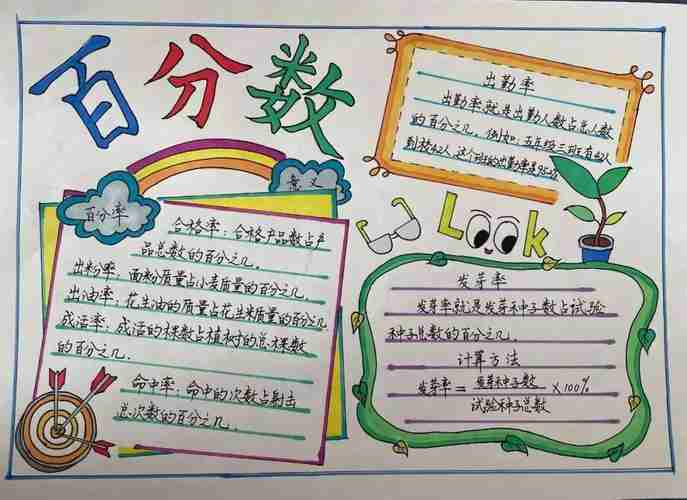 百分数
百分率
意义
合格率：合格产品数占产
品总数的百分之几.
出粉率：面粉质量占小麦质量的百分之几.
出油率：花生油的质量占花生米质量的百分之几
成活率：成活的棵数占植树的总棵数
的百分之几.
命中率：命中的次数占射击
总次数的百分之几.
出勤率
出勤率就是出勤人数占总人数
的百分之几. 例如：五年级三班有
到校42人 这个班的出勤率是
Look
发芽率
发芽率就是发芽种子数占试验
种子总数的百分之几.
计算方法
发芽率＝发芽种子数×100%
试验种子总数